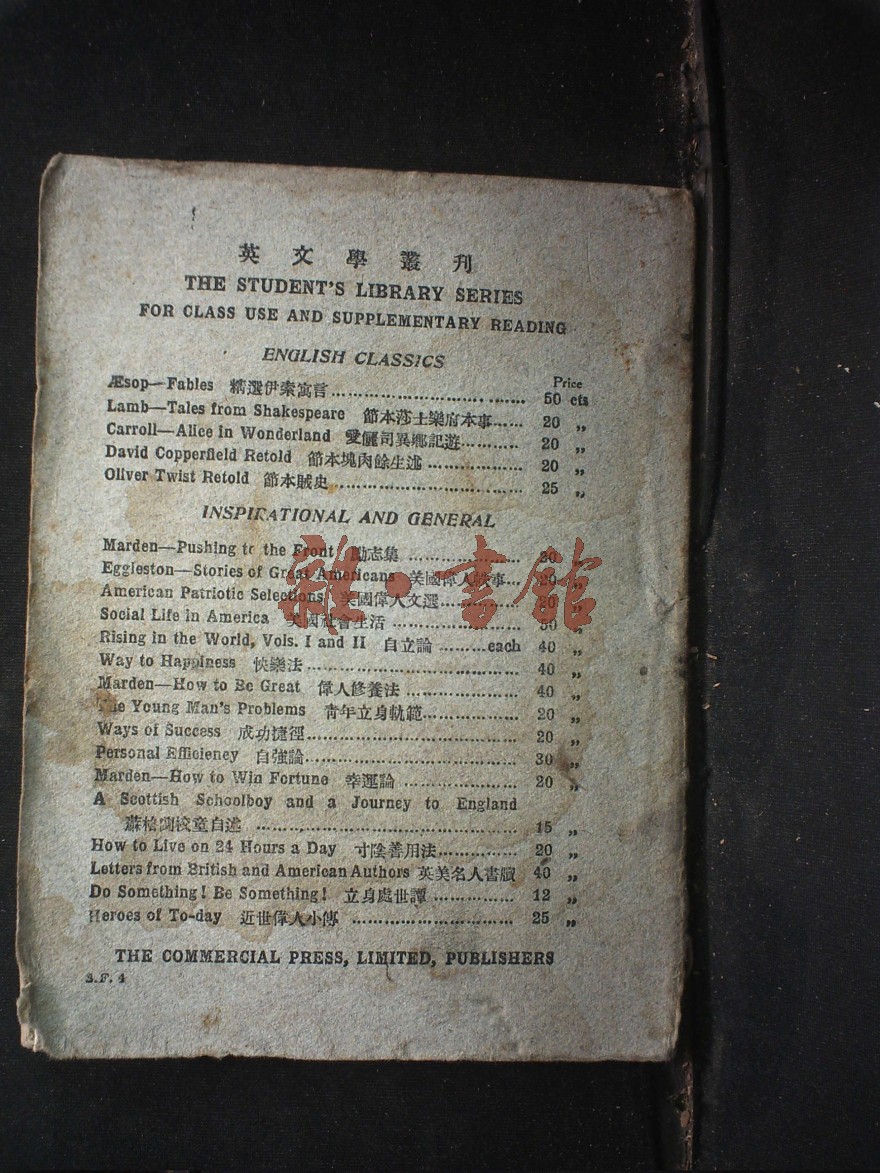 英文學叢刊
THE STUDENT'S LIBRARY SERIES
FOR CLASS USE AND SUPPLEMENTARY READING
ENGLISH CLASSICS
Price
Æsop—Fables 精選伊索寓言 50 cts
Lamb—Tales from Shakespeare 節本莎士樂府本事 20 „
Carroll—Alice in Wonderland 愛儷司異鄉記遊 20 „
David Copperfield Retold 節本塊肉餘生述 20 „
Oliver Twist Retold 節本賊史 25 „
INSPIRATIONAL AND GENERAL
Marden—Pushing to the Front 勵志集 20 „
Eggleston—Stories of Great Americans 美國偉人軼事 20 „
American Patriotic Selections 美國偉人文選 20 „
Social Life in America 美國社會生活 „
Rising in the World, Vols. I and II 自立論 each 40 „
Way to Happiness 快樂法 40 „
Marden—How to Be Great 偉人修養法 40 „
The Young Man's Problems 青年立身軌範 20 „
Ways of Success 成功捷徑 20 „
Personal Efficiency 自強論 30 „
Marden—How to Win Fortune 幸運論 20 „
A Scottish Schoolboy and a Journey to England
蘇格蘭校童自述 15 „
How to Live on 24 Hours a Day 寸陰善用法 20 „
Letters from British and American Authors 英美名人書牘 40 „
Do Something! Be Something! 立身處世譚 12 „
Heroes of To-day 近世偉人小傳 25 „
THE COMMERCIAL PRESS, LIMITED, PUBLISHERS
S.F. 4
雜·書館